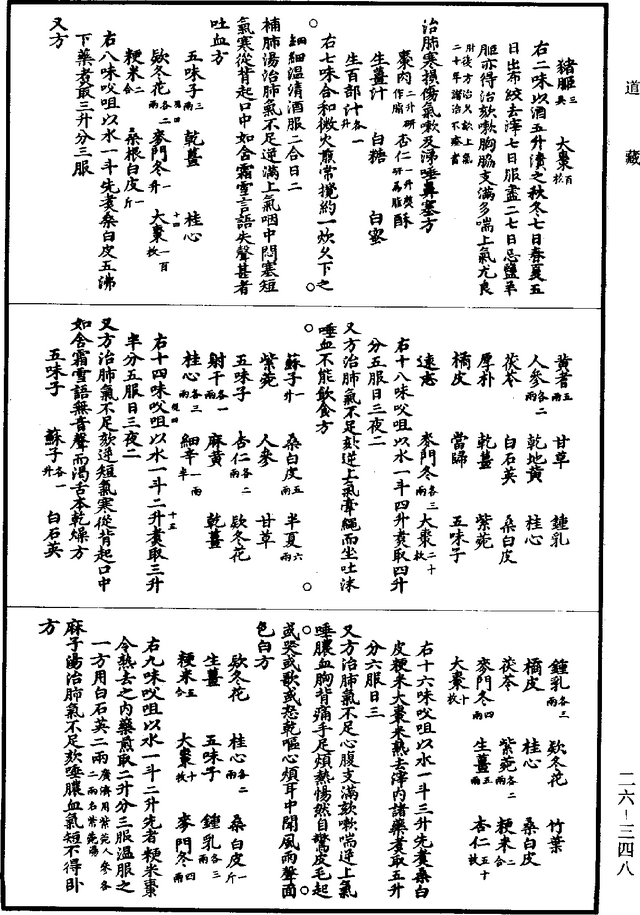 道藏
豬胵三具　大棗百枚
右二味以酒五升漬之秋冬七日春夏五
日出布絞去滓七日服盡二七日忌鹽羊
胵亦得治欬嗽胸脇支滿多喘上氣尤良
肘後方治久欬上氣二十年諸治不瘥者
治肺寒損傷氣嗽及涕唾鼻塞方
棗肉二升研作脂　杏仁一升熬研爲脂　酥
生薑汁　白糖　白蜜
生百部汁各一升
右七味合和微火煎常攪約一炊久下之
細細溫清酒服二合日二
補肺湯治肺氣不足逆滿上氣咽中悶塞短
氣寒從背起口中如含霜雪言語失聲甚者
吐血方
五味子三兩　乾薑　桂心
欵冬花各二兩　麥門冬一升　大棗一百枚
粳米二合　桑根白皮一斤
右八味㕮咀以水一斗先煮桑白皮五沸
下藥煮取三升分三服
又方
黃耆五兩　甘草　鍾乳
人參各二兩　乾地黃　桂心
茯苓　白石英　桑白皮
厚朴　乾薑　紫菀
橘皮　當歸　五味子
遠志　麥門冬各三兩　大棗二十枚
右十八味㕮咀以水一斗四升煮取四升
分五服日三夜二
又方治肺氣不足欬逆上氣牽繩而坐吐沫
唾血不能飲食方
蘇子一升　桑白皮五兩　半夏六兩
紫菀　人參　甘草
五味子　杏仁各二兩　欵冬花
射干各一兩　麻黃　乾薑
桂心各三兩　細辛一兩半
右十四味㕮咀以水一斗二升煮取三升
半分五服日三夜二
又方治肺氣不足欬逆短氣寒從背起口中
如含霜雪語無音聲而渴舌本乾燥方
五味子　蘇子各一升　白石英
鍾乳各三兩　欵冬花　竹葉
橘皮　桂心　桑白皮
茯苓　紫菀各二兩　粳米二合
麥門冬四兩　生薑五兩　杏仁五十枚
大棗十枚
右十六味㕮咀以水一斗三升先煮桑白
皮粳米大棗米熟去滓内諸藥煮取五升
分六服日三
又方治肺氣不足心腹支滿欬嗽喘逆上氣
唾膿血胸背痛手足煩熱惕然自驚皮毛起
或哭或歌或怒乾嘔心煩耳中聞風雨聲面
色白方
欵冬花　桂心各二兩　桑白皮一斤
生薑　五味子　鍾乳各三兩
粳米五合　大棗十枚　麥門冬四兩
右九味㕮咀以水一斗二升先煮粳米棗
令熟去之内藥煎取二升分三服溫服之
一方用白石英二兩廣濟用紫菀人參各二兩名紫菀湯
麻子湯治肺氣不足欬唾膿血氣短不得臥
方
二六－三四八